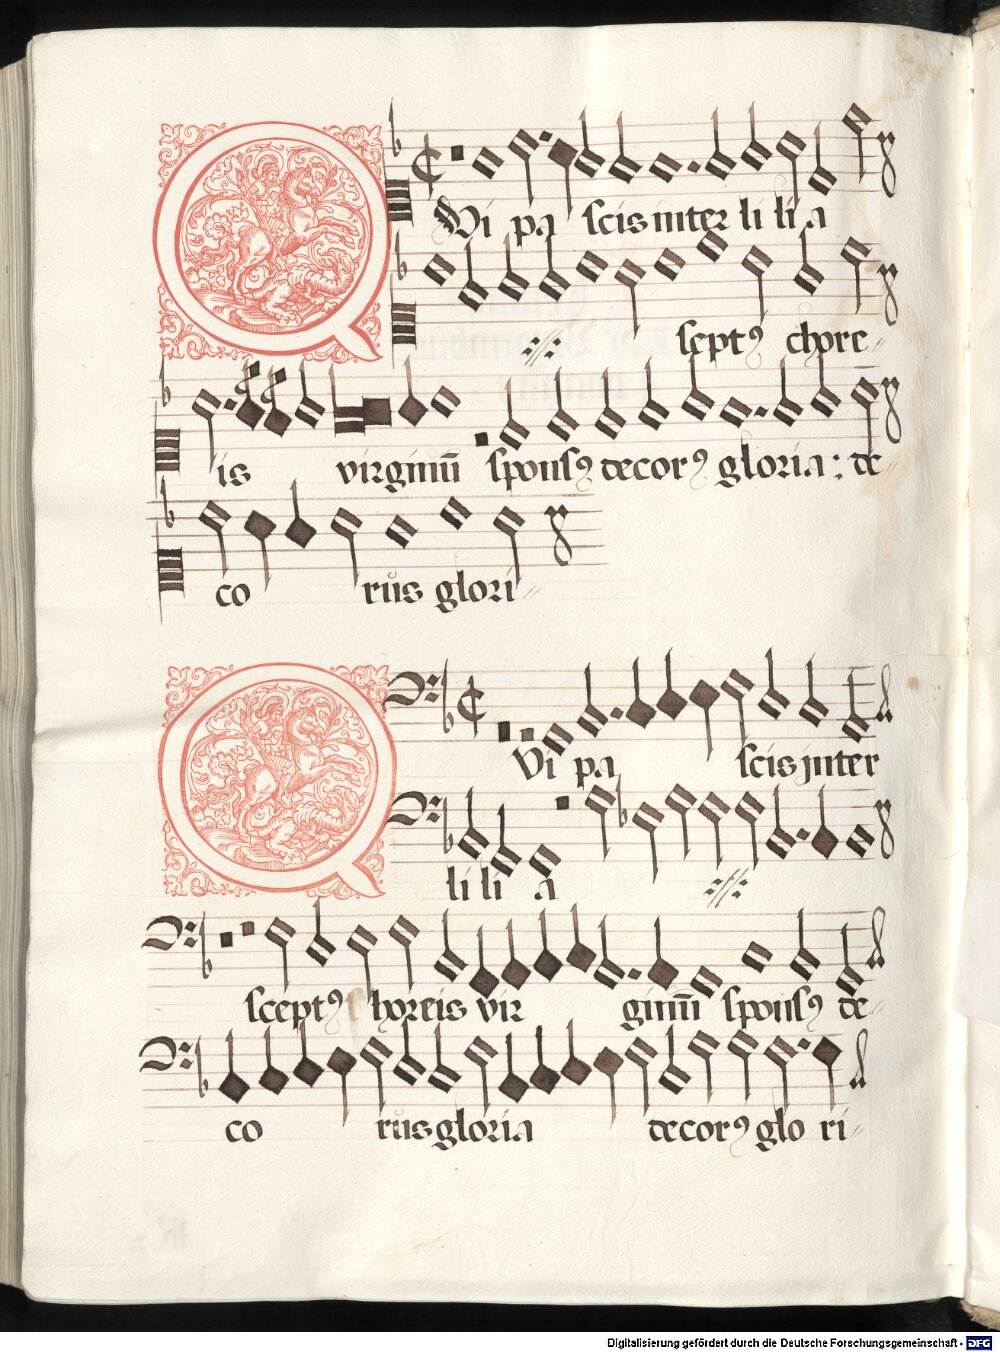 Qvi pa scis inter li li a
sept⁹ chore
is virginū spons⁹ decor⁹ gloria : de
co rūs glori
Qvi pa scis inter
li li a
scept⁹ horeis vir ginū spons⁹ de
co rūs gloria decor⁹ glo ri
Digitalisierung gefördert durch die Deutsche Forschungsgemeinschaft - DFG